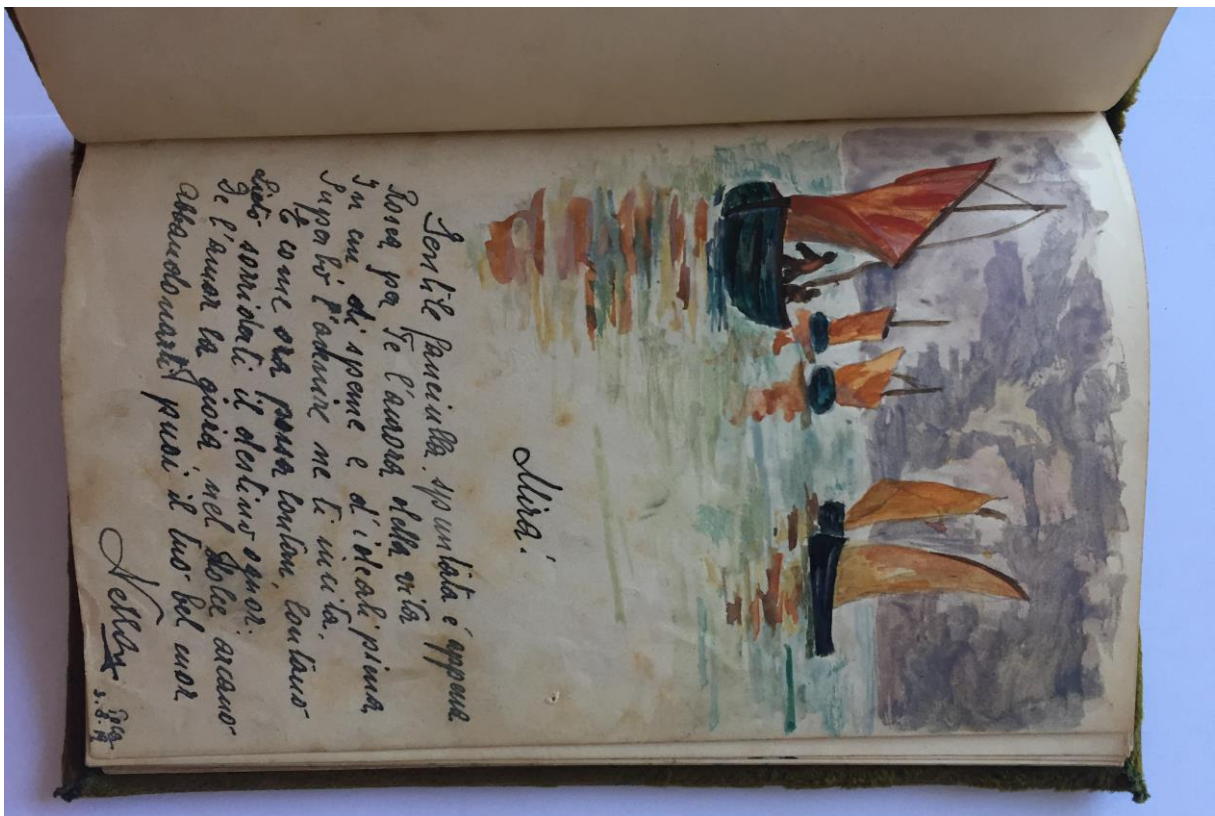 Mirà!
Gentile fanciulla, spuntata è appena
Rosea per Te l'aurora della vita
In cui di speme e d'ideali piena,
Superbo l'amore ne ti invita.
E come ora possa lontan lontano
Lieto sorriderti il destino ognor:
De l'amor la gioia, nel dolce arcano
Abbandonarti puoi il tuo bel cuor.